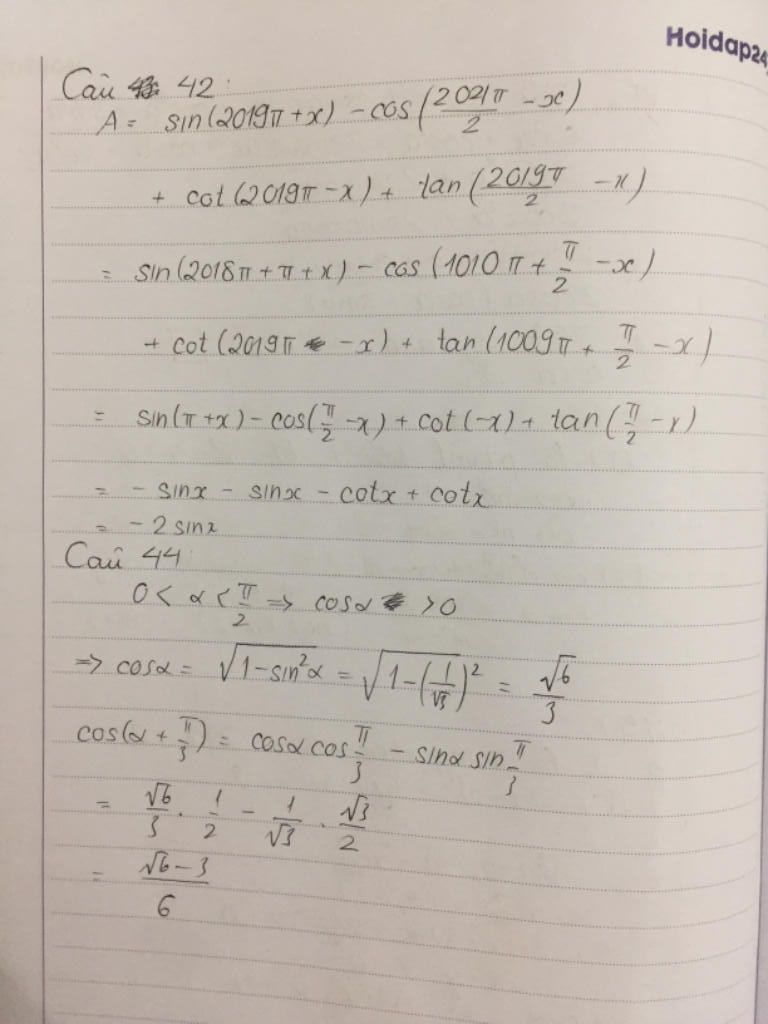 Hoidap24
Câu 42:
A = sin(2019π+x) - cos(2021π/2 - x)
+ cot(2019π-x) + tan(2019π/2 - x)
= sin(2018π+π+x) - cos(1010π+π/2-x)
+ cot(2019π -x) + tan(1009π+π/2-x)
= sin(π+x) - cos(π/2-x) + cot(-x) + tan(π/2-x)
= - sinx - sinx - cotx + cotx
= - 2 sinx
Câu 44:
0 < α < π/2 => cosα > 0
=> cosα = √(1-sin²α) = √(1-(1/√3)²) = √6/3
cos(α+π/3) = cosα cos π/3 - sinα sin π/3
= √6/3 . 1/2 - 1/√3 . √3/2
= (√6-3)/6